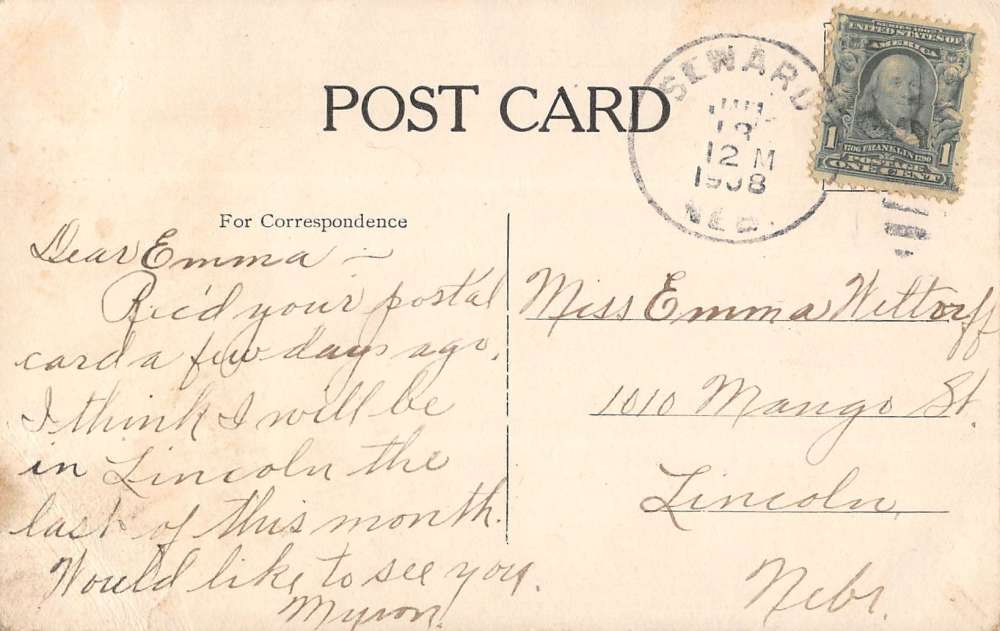 POST CARD
SEWARD
12 M
1908
NEB.
SERIES 1902
UNITED STATES OF
AMERICA
1706 FRANKLIN 1790
1 POSTAGE 1
ONE CENT
For Correspondence
Dear Emma –
Rec'd your postal
card a few days ago.
I think I will be
in Lincoln the
last of this month.
Would like to see you.
Myron.
Miss Emma Weltorff
1010 Mango St.
Lincoln,
Nebr.